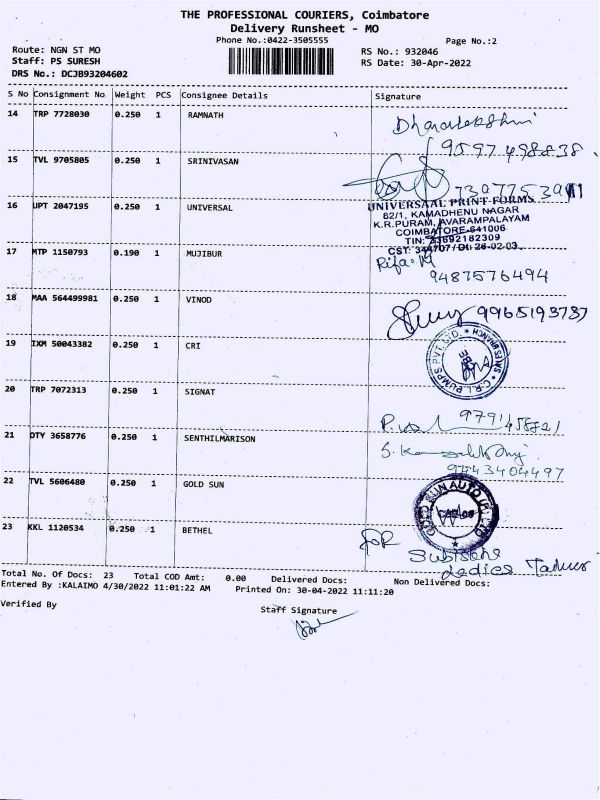 THE PROFESSIONAL COURIERS, Coimbatore
Delivery Runsheet - MO
Phone No.:0422-3505555
Page No.:2
Route: NGN ST MO
RS No.: 932046
Staff: PS SURESH
RS Date: 30-Apr-2022
DRS No.: DCJB93204602
S No Consignment No Weight PCS Consignee Details Signature
14 TRP 7728030 0.250 1 RAMNATH
9597498838
15 TVL 9705805 0.250 1 SRINIVASAN
16 UPT 2047195 0.250 1 UNIVERSAL
UNIVERSAAL PRINT FORMS
82/1, KAMADHENU NAGAR
K.R.PURAM, AVARAMPALAYAM
COIMBATORE-641006
TIN: 33692182309
CST: 344707 / Dt: 26-02-03
17 MTP 1150793 0.190 1 MUJIBUR
9487576494
18 MAA 564499981 0.250 1 VINOD
9965193737
19 IXM 50043382 0.250 1 CRI
C.R.I. PUMPS PVT. LTD.
20 TRP 7072313 0.250 1 SIGNAT
21 DTY 3658776 0.250 1 SENTHILMARISON
9443404497
22 TVL 5606480 0.250 1 GOLD SUN
23 KKL 1120534 0.250 1 BETHEL
for
Ladies
Total No. Of Docs: 23 Total COD Amt: 0.00 Delivered Docs: Non Delivered Docs:
Entered By :KALAIMO 4/30/2022 11:01:22 AM Printed On: 30-04-2022 11:11:20
Verified By
Staff Signature